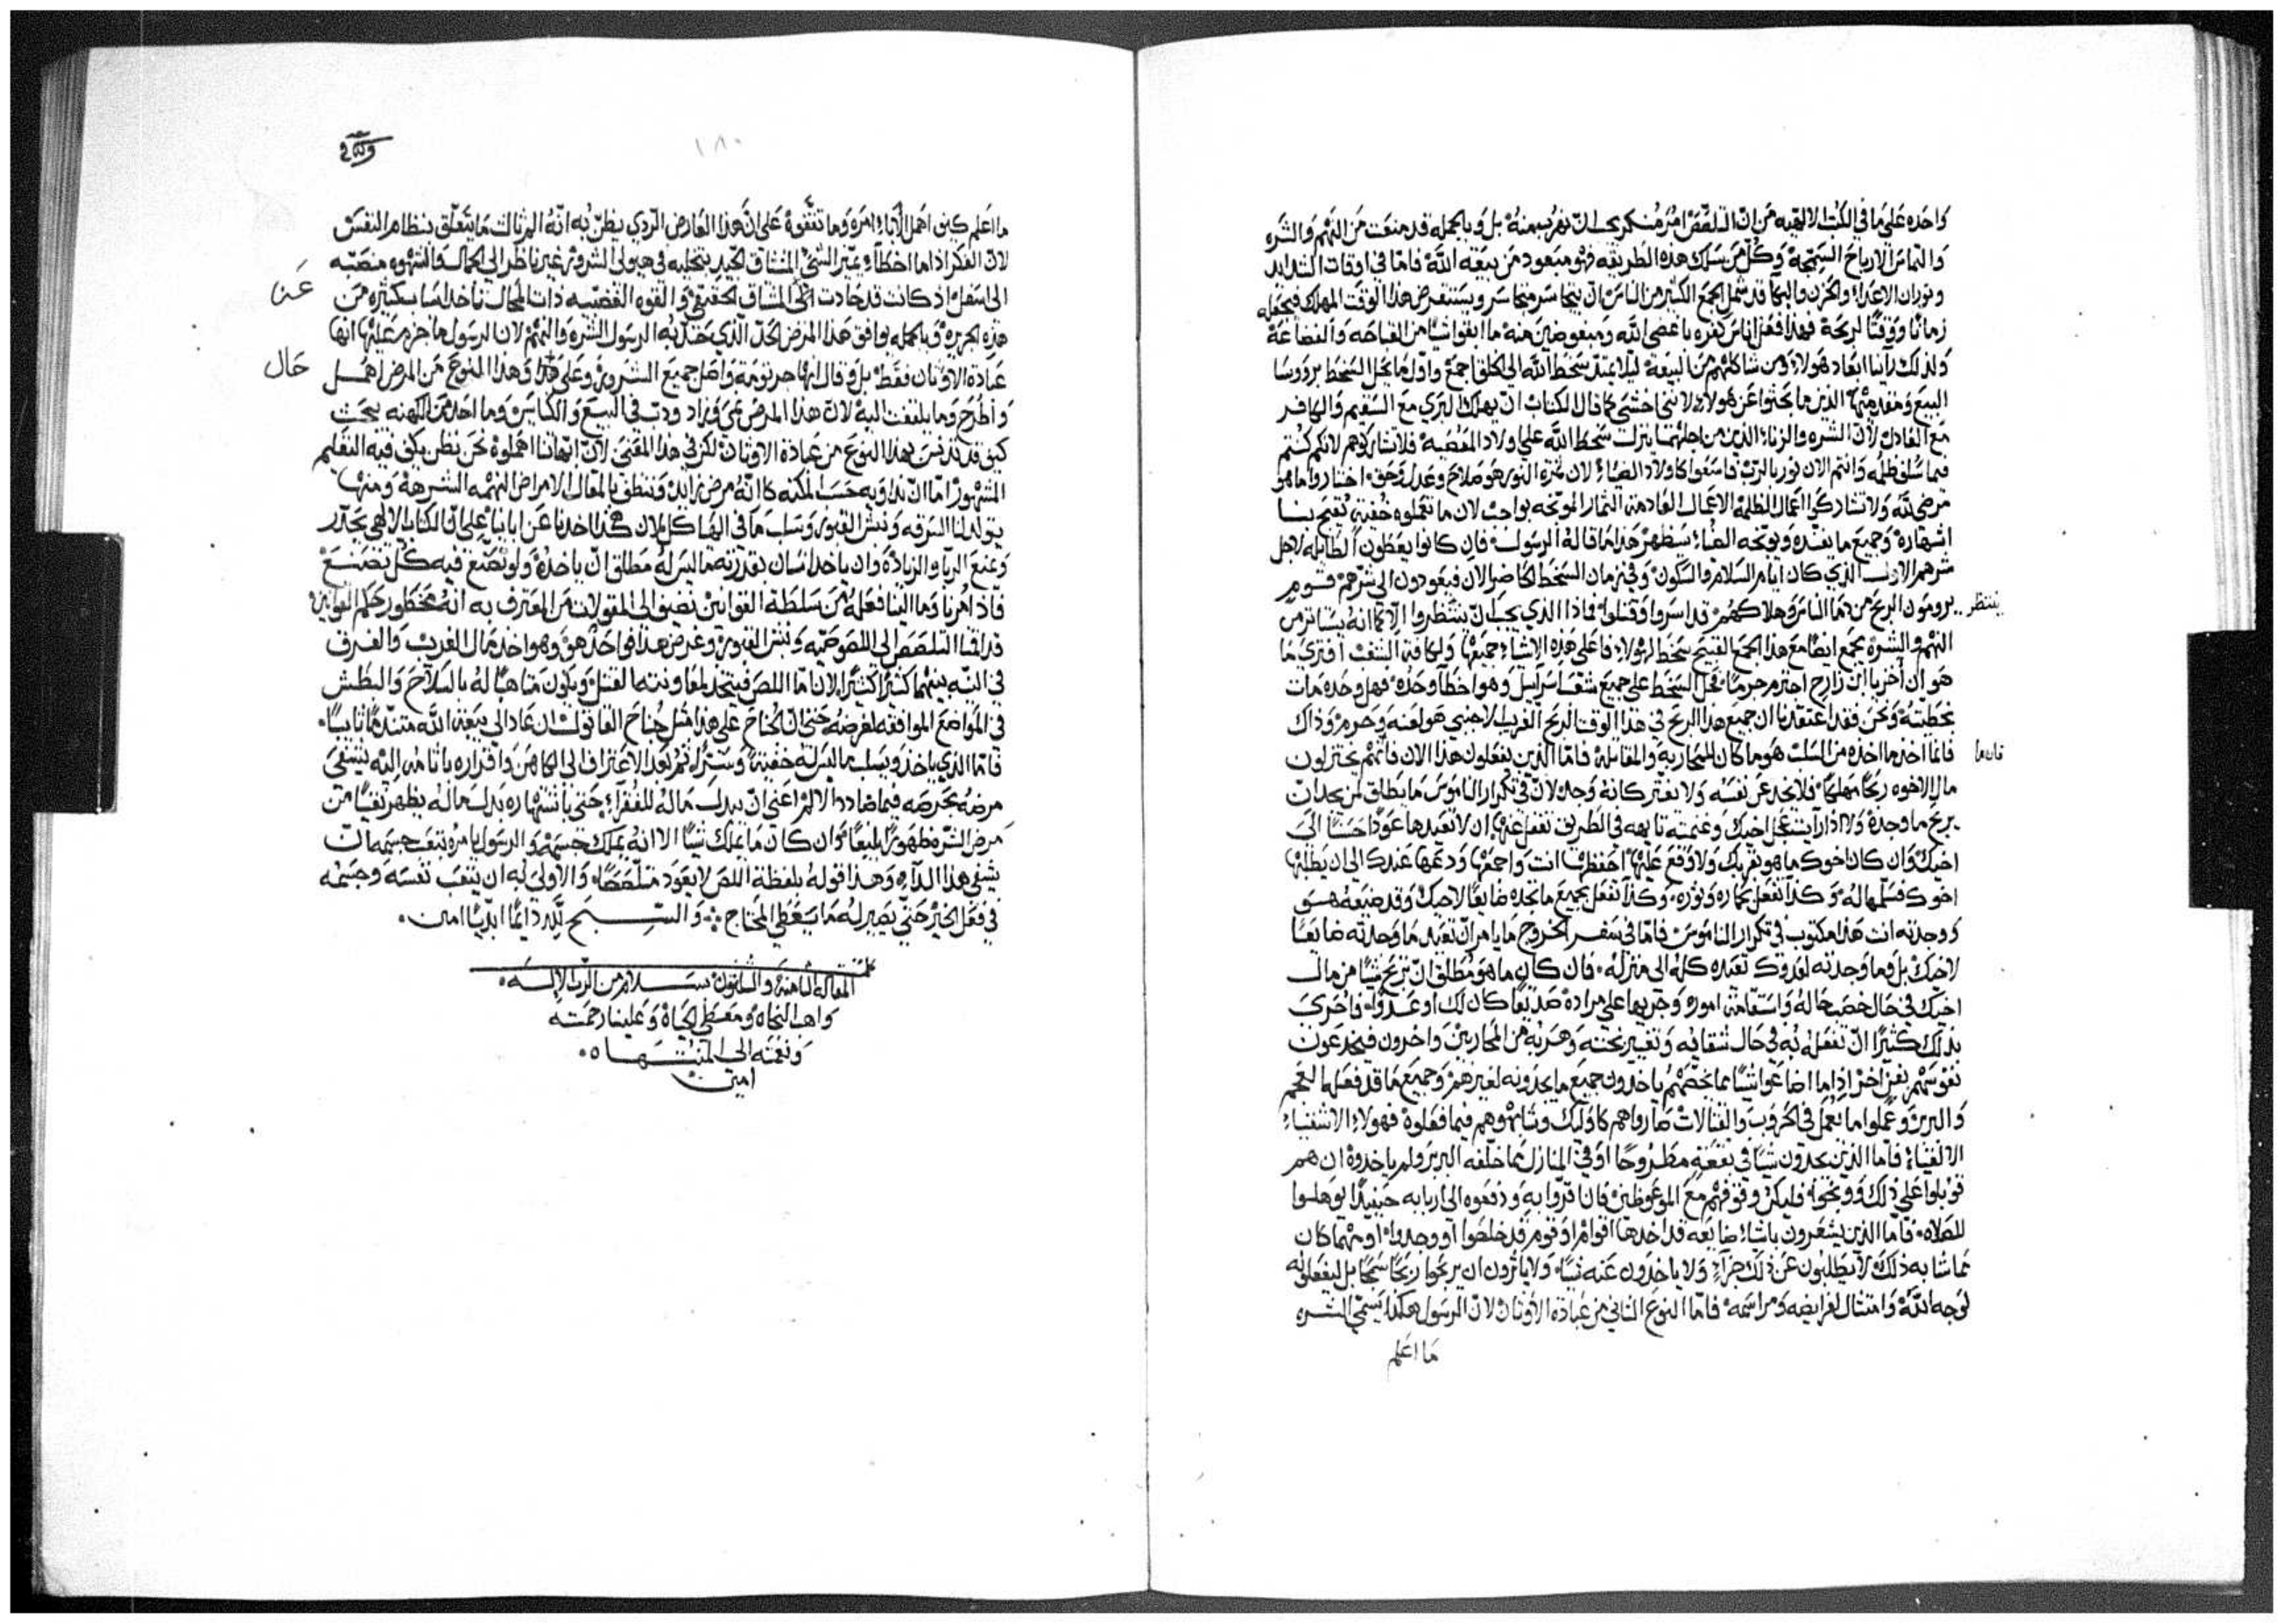 واحده على ما في الكتب الالهيه من ان التلصص امر منكر يجب ان نفر منه بل وبالجمله قد منعت من النهم والشره
والتماس الارباح السمجة وكل من سلك هذه الطريقه فهو مبعود من بيعة الله فاما في اوقات الشدايد
وثوران الاعداء والحزن والبكا قد شمل الجمع الكثير من الناس ان يتجاسر متجاسر ويستغرض هذا الوقت المهلك فيجعله
زمانا ووقتا لربحة فهذا فعل اناس كفره باغضي الله ومبغوضين منه ما ابقوا شيا من القباحه والفضاعة
ولذلك راينا ابعاد هولاء ومن شاكلهم من البيعة ليلا يمتد سخط الله الى الكل اجمع واول ما يحل السخط بروسا
البيع ومقدميها الذين ما بحثوا عن هولاء لانني اخشى كما قال الكتاب ان يهلك البري مع السقيم والكافر
مع العادل لان الشره والزناء الذين من اجلهما ينزل سخط الله على اولاد المعصية فلا تشاركوهم لانكم كنتم
فيما سلف ظلمه وانتم الان نور بالرب فاسعوا كاولاد الضياء لان ثمرة النور هو صلاح وعدل وحق اختاروا ما هو
مرضي لله ولا تشاركوا اعمال الظلمه الاعمال العادمة الثمار الموبخه بواجب لان ما تعملوه خفية يقبح بنا
اشهاره وجميع ما يفنده ويوبخه الضياء سيظهر هذا ما قاله الرسول فان كانوا يعطون الطايله لاجل
شرههم الاول الذي كان ايام السلام والسكون وفي زمان السخط الحاضر الان فيعودون الى شرهم قوم
يرومون الربح من دما الناس وهلاكهم قد اسروا وقتلوا فماذا الذي يجب ان ينتظروا الا كما انه يستاثر من
ينتظر
النهم والشره يجمع ايضا مع هذا الجمع القبيح سخط لهولاء فاعلى هذه الاشياء جميعها ولكافة الشعب افترى ما
هو ان اخر يا ابن زارح اجترم حرما فحل السخط على جميع شعب اسراييل وهو اخطا وحده فهل وحده مات
بخطيته ونحن فقد اعتقدنا ان جميع هذا الربح في هذا الوقت الربح الغريب الاجنبي هو لعنه وحرم وذاك
فانما اخذ ما اخذه من السلب هو ما كان للمحاربه والمقاتلة فاما الذين يفعلون هذا الان فانهم يختزلون
مال الاخوه ربحا مهلكا فلا يخدعن نفسه ولا يغتر كانه وجد لان في تكرار الناموس ما يطلق لمن يجد ان
يربح ما وجده ولا اذا رايت عجل اخيك وغنمته تايهه في الطريق تغفل عنها ان لا تعيدها عودا حسنا الى
اخيك وان كان اخوك ما هو بقربك ولا وقع عليها احفظها انت واجمعها ودعها عندك الى ان يطلبها
اخوك فسلمها له وكذا تفعل بحماره وثوره وكذا تفعل بجميع ما تجده ضايعا لاخيك وقد ضيعه هو
ووجدته انت هذا مكتوب في تكرار الناموس فاما في سفر الخروج ما يامر ان تعيد ما وجدته ضايعا
لاخيك بل وما وجدته لعدوك تعيده كله الى منزله فان كان ما هو مطلق ان تربح شيا من مال
اخيك في حال خصب حاله واستقامة اموره وجريها على مراده صديقا كان لك او عدوا فاحرى
بذلك كثيرا ان تفعله به في حال شقايه وتغيير بخته وهربه من المحاربين واخرون فيخدعون
نفوسهم بفن اخر اذا ما اضاعوا شيا مما يخصهم ياخذون جميع ما يجدونه لغيرهم وجميع ما قد فعلها العجم
والبربر وعملوا ما يعمل في الحروب والقتالات صاروا هم كاوليك وشابهوهم فيما فعلوه فهولاء الاشقياء
الاغبياء فاما الذين يجدون شيا في بقعة مطروحا او في المنازل مما خلفه البربر ولم ياخذوه ان هم
قوبلوا على ذلك ووبخوا فليكن وقوفهم مع الموعوظين فان اقروا به ودفعوه الى اربابه حينيذ ايوهلوا
للصلاه فاما الذين يشعرون باشياء ضايعه قد اخذها اقوام او قوم قد خلصوا او وجدوا او مهما كان
مما شابه ذلك لا يطلبون عن ذلك جزاء ولا ياخذون عنه شيا ولا ياثرون ان يربحوا ربحا سمجا بل ليفعلوه
لوجه الله وامتثال لفرايضه ومراسمه فاما النوع الثاني من عبادة الاوثان لان الرسول هكذا يسمي الشره
ما اعلم
١٨٠
ما اعلم كيف اهمل الاباء امره وما تفقوه على ان هذا العارض الردي يظن به انه الم ثالث ما يتعلق بنظام النفس
لان الفكر اذا ما اخطا وغير الشي المشتاق الجيد بتخليه في هيولى الشرور غير ناظر الى الكمال والشهوه منصبه
الى اسفل اذ كانت قد حادت الى المشتاق الحقيقي والقوه الغضبيه ذات المجال تاخذ اسا بكثيره من
عن
هذه الجريره وبالجمله يوافق هذا المرض الحد الذي حد به الرسول الشره والنهم لان الرسول ما جزم عليها انها
عبادة الاوثان فقط بل وقال انها جرثومة واصل جميع الشرور وعلى هذا وهذا النوع من المرض اهمل
حال
واطرح وما يلتفت اليه لان هذا المرض نمى وزاد ودب في البيع والكنايس وما احد من الكهنه يبحث
كيف قد تدنس بهذا النوع من عبادة الاوثان لكن في هذا المعنى لان اباتنا اهملوه نحن نظن يكفي فيه التعليم
المشهور اما ان نداويه حسب المكنه كانه مرض زايد وتنظف بالمقال الامراض النهمه الشرهة ومنها
يتولد لنا السرقه ونبش القبور وسلب ما في الهياكل لان هكذا اخذنا عن اباينا على ان الكتاب الالهي يحذر
ويمنع الربا والزيادة وان ياخذ انسان بقدرته ما ليس له مطلق ان ياخذه ولو تصنع فيه كل تصنع
فاذ امرنا وما الينا فعله من سلطة القوانين نضيف الى المقولات من المعترف به انه محظور حكم القوانين
قد اقنا التلصص الى اللصوصيه ونبش القبور وغرض هذا في احد هو وهو اخذ مال الغريب والفرق
في النيه بينهما كثيرا كثيرا لان اما اللص فيتخذ لمعاونته القتل ويكون متاهبا له بالسلاح والبطش
في المواضع الموافقه لغرضه حتى ان الجناح على هذا مثل جناح القاتول ان عاد الى بيعة الله متندما تايبا
فاما الذي ياخذ ويسلب ما ليس له خفية وسترا ثم بعد الاعتراف الى الكاهن واقراره باثامه اليه يشفي
مرضه بحرصه فيما ضادد الالم اعني ان يبدل ماله للفقراء حتى باشتهاره بدل ماله يظهر نقيا من
مرض الشره ظهورا بليغا وان كان ما يملك شيا الا انه يملك جسمه والرسول يامره بتعب جسمه ان
يشفي هذا الداء وهذا قوله بلفظة اللص لا يعود متلصصا والاولى به ان يتعب نفسه وجسمه
في فعل الخير حتى يصير له ما يعطي المحتاج والسبح لله دايما ابديا امين
كملت
المقاله الثامنة والثلثون بسلام من الرب الاله
واهب النجاة ومعطي الحياة وعلينا رحمته
ونعمته الى المنتها
امين